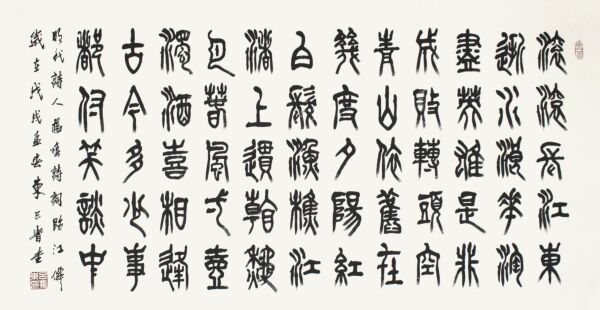 滾滾長江東
逝水浪花淘
盡英雄是非
成敗轉頭空
青山依舊在
幾度夕陽紅
白髮漁樵江
渚上慣看秋
月春風弌壺
濁酒喜相逢
古今多少事
都付笑談中
明代詩人楊慎詩詞臨江僊
歲在戊戌孟